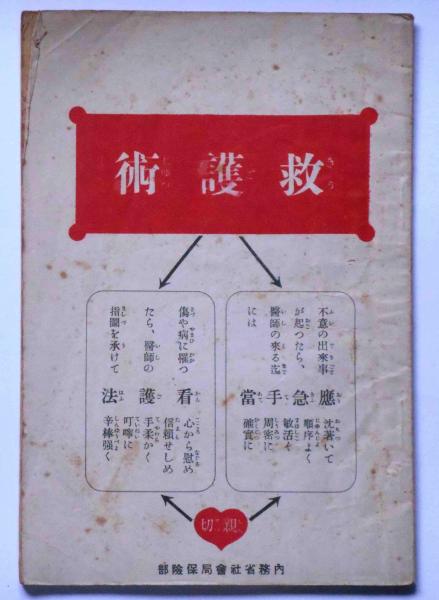 救護術
不意の出來事
が起つたら、
醫師の來る迄
には
應急手當
沈著いて
順序よく
敏活く
周密に
確實に
傷や病に罹つ
たら、醫師の
指圖を承けて
看護法
心から慰め
信賴せしめ
手柔かく
叮嚀に
辛棒強く
親切
內務省社會局保險部